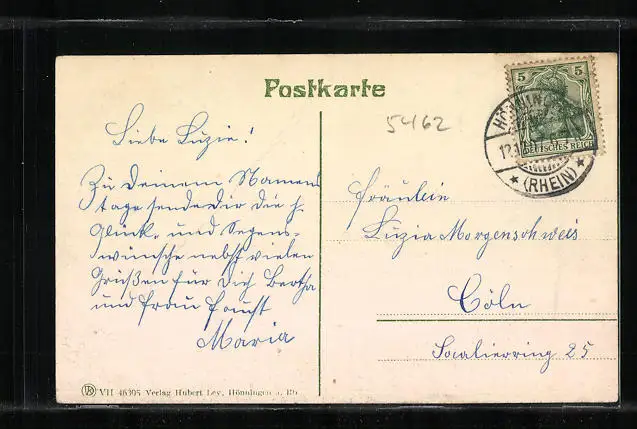 Postkarte
5462
5 5
DEUTSCHES REICH
HÖNNINGEN
12.
★ (RHEIN) ★
Liebe Luzie!
Zu Deinem Namens
tage sende Dir die h.
Glück- und Segens-
wünsche nebst vielen
Grüßen für Dich Bertha
und Frau Faust
Maria
Fräulein
Luzia Morgenschweis
Cöln
Socalierring 25
VII 46395 Verlag Hubert Ley, Hönningen a. Rh